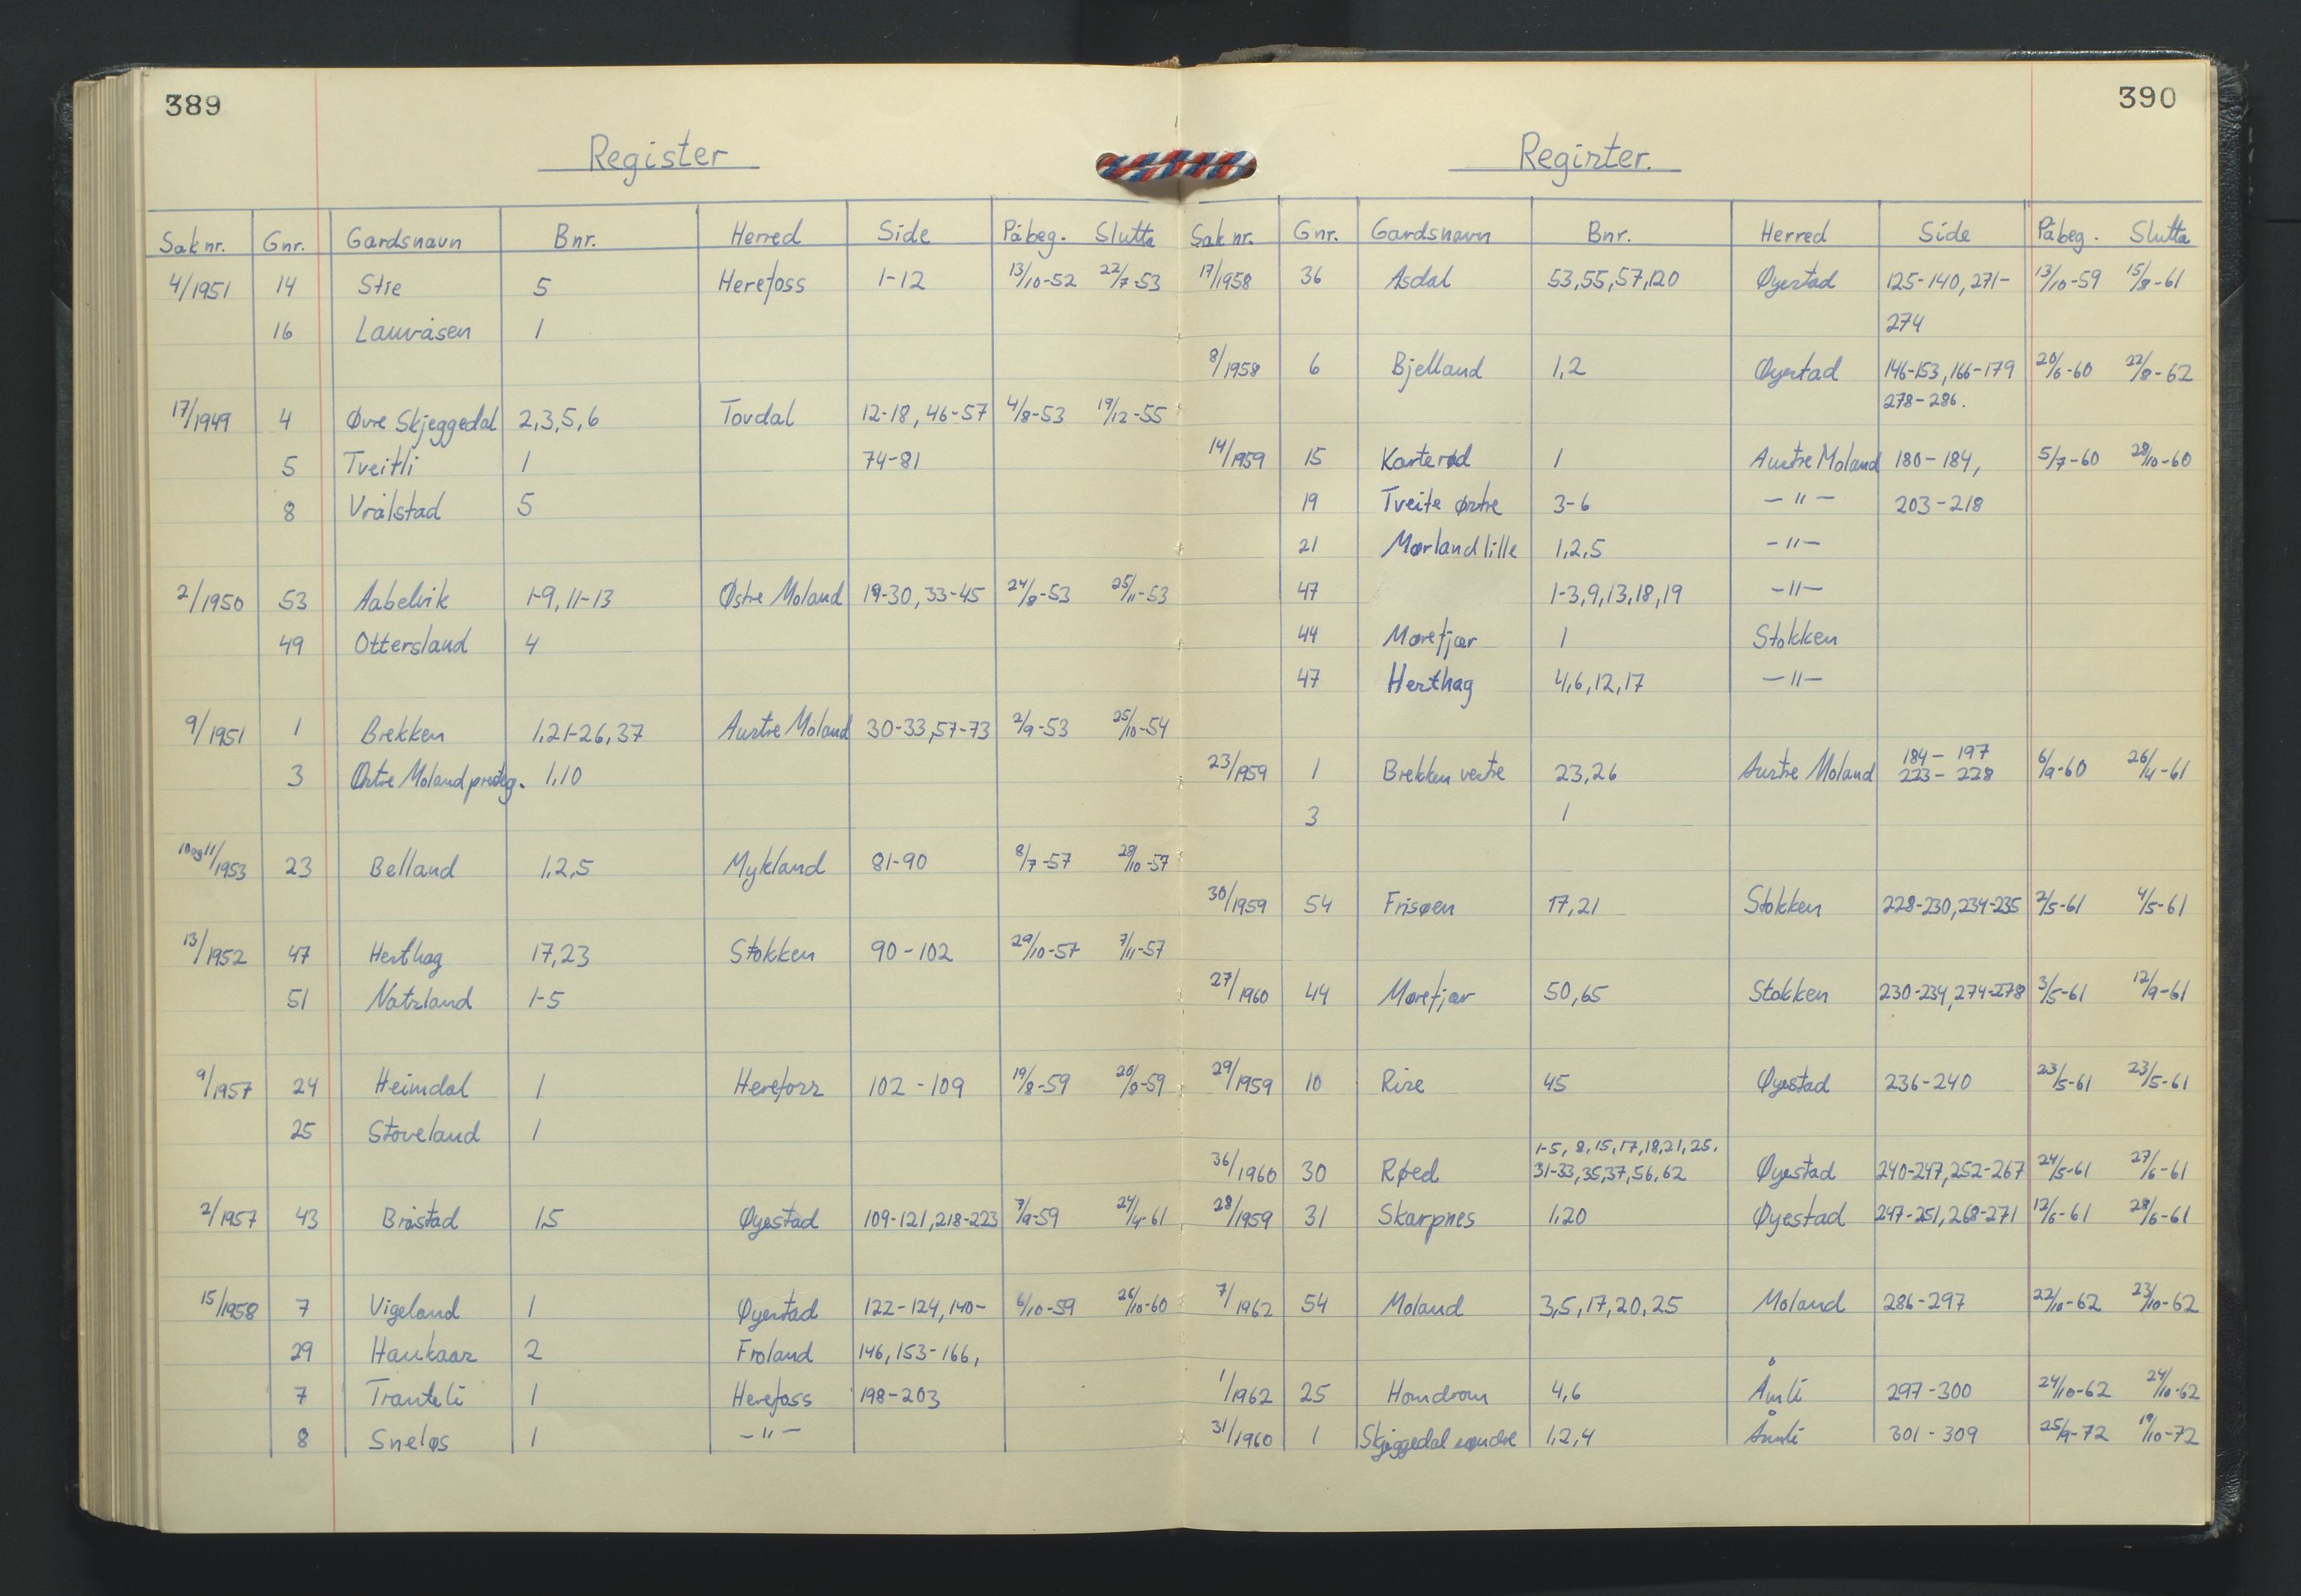 389
Register
Sak nr. Gnr. Gardsnavn Bnr. Herred Side Påbeg. Slutta
4/1951 14 Stie 5 Herefoss 1-12 13/10-52 22/7-53
16 Lauvåsen 1
17/1949 4 Øvre Skjeggedal 2,3,5,6 Tovdal 12-18, 46-57 4/8-53 19/12-55
5 Tveitli 1 74-81
8 Vrålstad 5
2/1950 53 Aabelvik 1-9, 11-13 Østre Moland 19-30, 33-45 24/8-53 25/11-53
49 Ottersland 4
9/1951 1 Brekken 1,21-26,37 Austre Moland 30-33,57-73 2/9-53 25/10-54
3 Østre Moland presteg. 1,10
10 og 11/1953 23 Belland 1,2,5 Mykland 81-90 8/7-57 28/10-57
13/1952 47 Hesthag 17,23 Stokken 90-102 29/10-57 7/11-57
51 Natsland 1-5
9/1957 24 Heimdal 1 Herefoss 102-109 19/8-59 20/8-59
25 Stoveland 1
2/1957 43 Bråstad 1,5 Øyestad 109-121,218-223 7/9-59 24/4-61
15/1958 7 Vigeland 1 Øyestad 122-124,140- 6/10-59 26/10-60
29 Haukaas 2 Froland 146, 153-166,
7 Tranteli 1 Herefoss 198-203
8 Sneløs 1 -"-
390
Register.
Sak nr. Gnr. Gardsnavn Bnr. Herred Side Påbeg. Slutta
17/1958 36 Asdal 53,55,57,120 Øyestad 125-140, 271- 13/10-59 15/8-61
274
8/1958 6 Bjelland 1,2 Øyestad 146-153, 166-179 20/6-60 22/8-62
278-286.
14/1959 15 Kasterød 1 Austre Moland 180-184, 5/7-60 28/10-60
19 Tveite østre 3-6 -"- 203-218
21 Mørland lille 1,2,5 -"-
47 1-3,9,13,18,19 -"-
44 Mørefjær 1 Stokken
47 Hesthag 4,6,12,17 -"-
184-197
23/1959 1 Brekken vestre 23,26 Austre Moland 223-228 6/9-60 26/4-61
3 1
30/1959 54 Frisøen 17,21 Stokken 228-230,234-235 2/5-61 4/5-61
27/1960 44 Mørefjær 50,65 Stokken 230-234,274-278 3/5-61 12/9-61
29/1959 10 Rise 45 Øyestad 236-240 23/5-61 23/5-61
1-5, 8,15,17,18,21,25.
36/1960 30 Røed 31-33,35,37,56,62 Øyestad 240-247,252-267 24/5-61 27/6-61
28/1959 31 Skarpnes 1,20 Øyestad 247-251,268-271 12/6-61 28/6-61
7/1962 54 Moland 3,5,17,20,25 Moland 286-297 22/10-62 23/10-62
1/1962 25 Homdrom 4,6 Åmli 297-300 24/10-62 24/10-62
31/1960 1 Skjeggedal søndre 1,2,4 Åmli 301-309 25/9-72 19/10-72